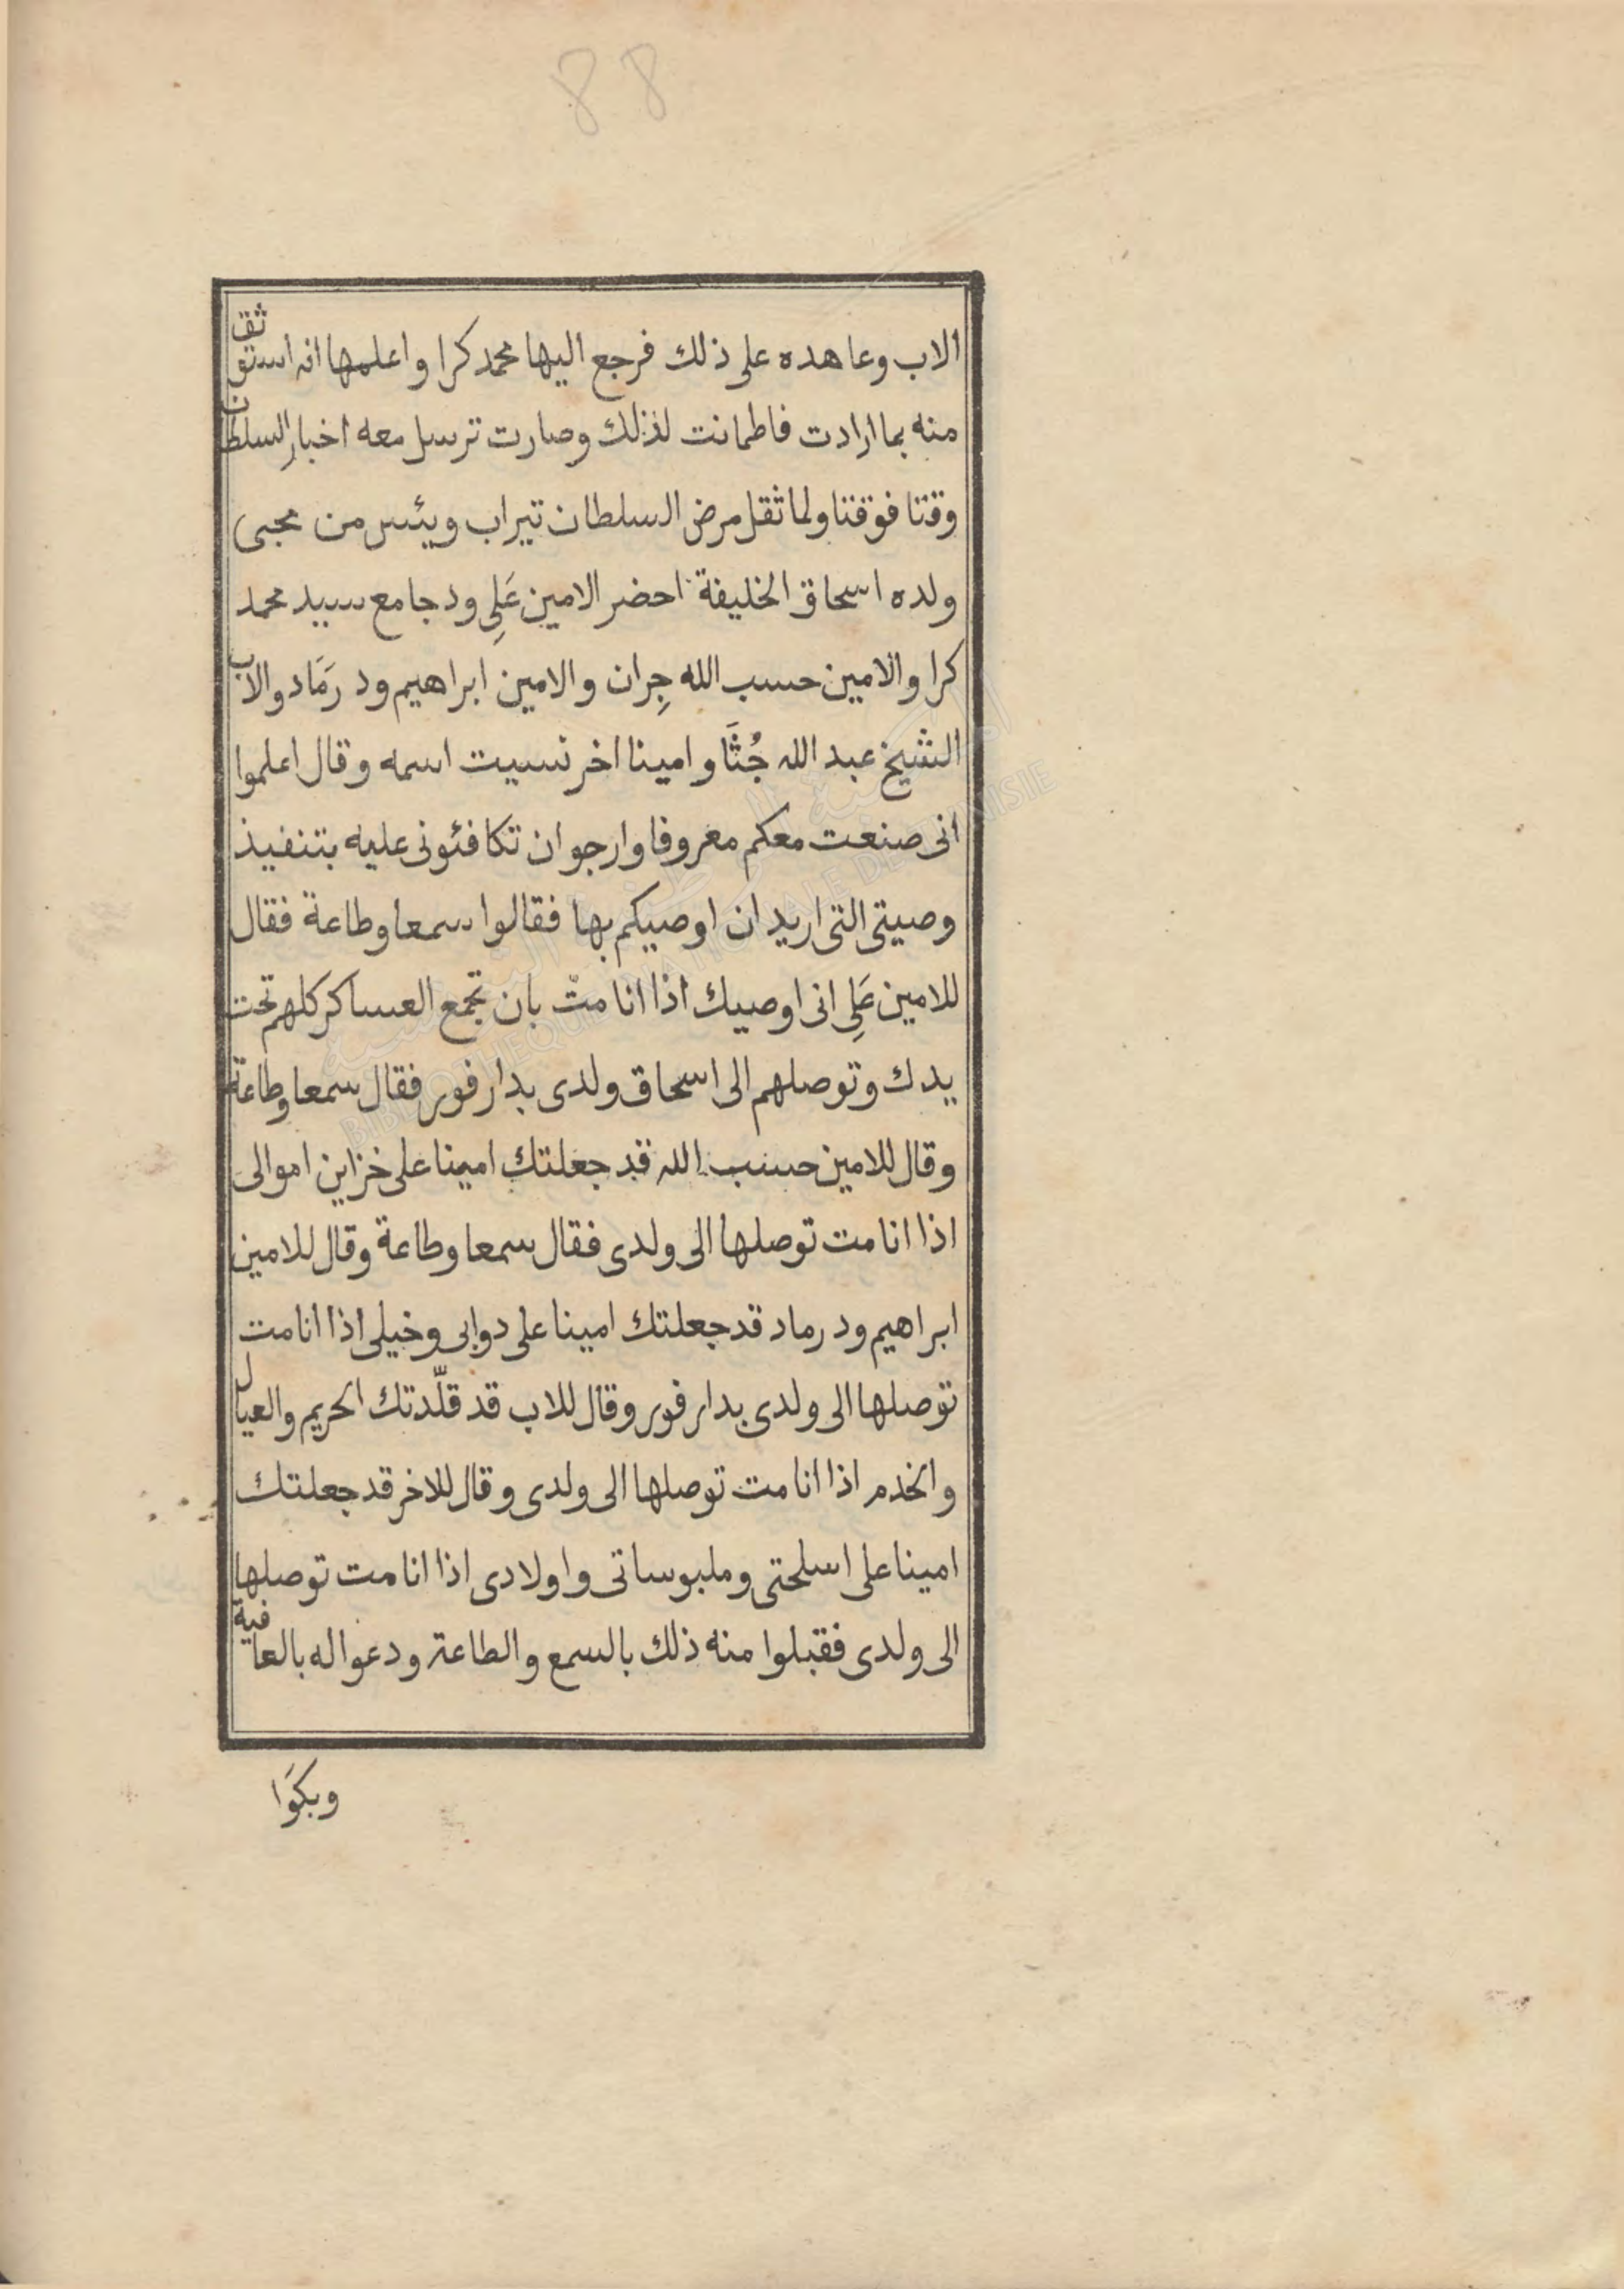 88
الاب وعاهده على ذلك فرجع اليها محمد كرا واعلمها انه استوثق
منه بما ارادت فاطمانت لذلك وصارت ترسل معه اخبار السلطان
وقتا فوقتا ولما ثقل مرض السلطان تيراب ويئس من مجيى
ولده اسحاق الخليفة احضر الامين عَلِى ود جامع سييد محمد
كرا والامين حسب الله جِران والامين ابراهيم ود رَمَاد والاب
الشيخ عبد الله جُثَا وامينا اخر نسيت اسمه وقال اعلموا
انى صنعت معكم معروفا وارجو ان تكافئونى عليه بتنفيذ
وصيتى التى اريد ان اوصيكم بها فقالوا سمعا وطاعة فقال
للامين عَلِى انى اوصيك اذا انا متّ بان تجمع العساكر كلهم تحت
يدك وتوصلهم الى اسحاق ولدى بدار فور فقال سمعا وطاعة
وقال للامين حسب الله قد جعلتك امينا على خزاين اموالى
اذا انا مت توصلها الى ولدى فقال سمعا وطاعة وقال للامين
ابراهيم ود رماد قد جعلتك امينا على دوابى وخيلى اذا انا مت
توصلها الى ولدى بدار فور وقال للاب قد قلّدتك الحريم والعيال
والخدم اذا انا مت توصلها الى ولدى وقال للاخر قد جعلتك
امينا على اسلحتى وملبوساتى واولادى اذا انا مت توصلها
الى ولدى فقبلوا منه ذلك بالسمع والطاعة ودعوا له بالعافية
وبكَوَا